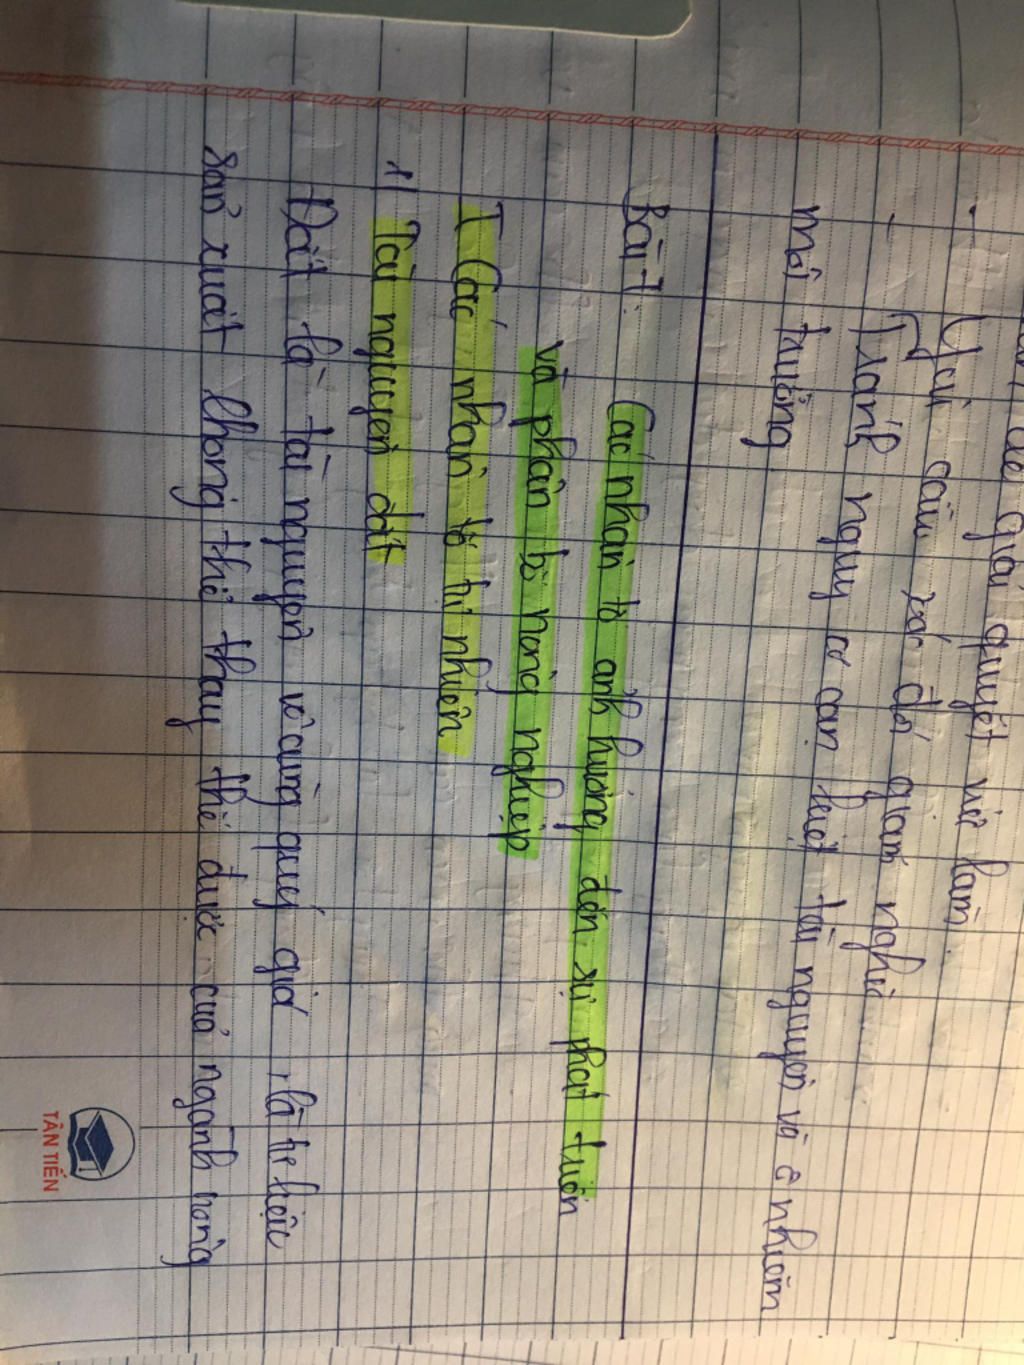 giải quyết việc làm.
- Yêu cầu xóa đói giảm nghèo
- Tránh nguy cơ cạn kiệt tài nguyên và ô nhiễm
môi trường
Bài 7: Các nhân tố ảnh hưởng đến sự phát triển
và phân bố nông nghiệp
I Các nhân tố tự nhiên
1/ Tài nguyên đất
Đất là tài nguyên vô cùng quý giá, là tư liệu
sản xuất không thể thay thế được của ngành nông
TÂN TIẾN